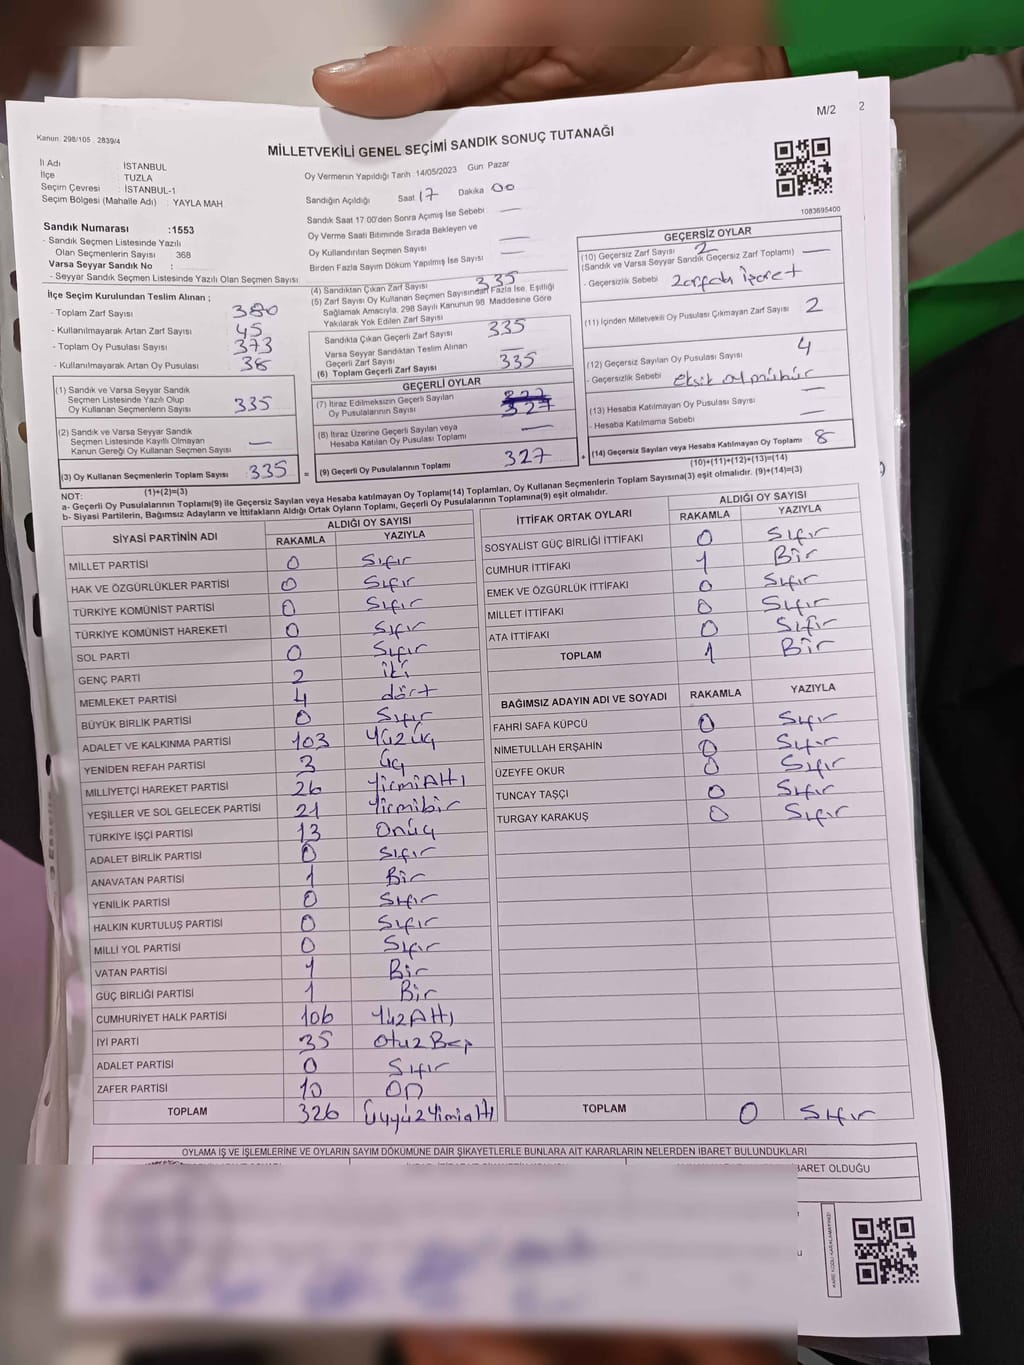 M/2 2
Kanun 298/105 , 2839/4
MİLLETVEKİLİ GENEL SEÇİMİ SANDIK SONUÇ TUTANAĞI
İl Adı : İSTANBUL
İlçe : TUZLA
Seçim Çevresi : İSTANBUL-1
Seçim Bölgesi (Mahalle Adı) : YAYLA MAH
Sandık Numarası :1553
- Sandık Seçmen Listesinde Yazılı
Olan Seçmenlerin Sayısı : 368
Varsa Seyyar Sandık No :
- Seyyar Sandık Seçmen Listesinde Yazılı Olan Seçmen Sayısı
Oy Vermenin Yapıldığı Tarih :14/05/2023 Gün Pazar
Sandığın Açıldığı Saat 17 Dakika 00
Sandık Saat 17.00'den Sonra Açımış İse Sebebi —
Oy Verme Saati Bitiminde Sırada Bekleyen ve
Oy Kullandırılan Seçmen Sayısı —
Birden Fazla Sayım Döküm Yapılmış İse Sayısı —
1083695400
İlçe Seçim Kurulundan Teslim Alınan ;
- Toplam Zarf Sayısı 380
- Kullanılmayarak Artan Zarf Sayısı 45
- Toplam Oy Pusulası Sayısı 373
- Kullanılmayarak Artan Oy Pusulası 38
(1) Sandık ve Varsa Seyyar Sandık
Seçmen Listesinde Yazılı Olup
Oy Kullanan Seçmenlerin Sayısı 335
(2) Sandık ve Varsa Seyyar Sandık
Seçmen Listesinde Kayıtlı Olmayan
Kanun Gereği Oy Kullanan Seçmen Sayısı —
(3) Oy Kullanan Seçmenlerin Toplam Sayısı 335
(1)+(2)=(3)
(4) Sandıktan Çıkan Zarf Sayısı 335
(5) Zarf Sayısı Oy Kullanan Seçmen Sayısından Fazla İse, Eşitliği
Sağlamak Amacıyla, 298 Sayılı Kanunun 98. Maddesine Göre
Yakılarak Yok Edilen Zarf Sayısı
Sandıkta Çıkan Geçerli Zarf Sayısı 335
Varsa Seyyar Sandıktan Teslim Alınan
Geçerli Zarf Sayısı —
(6) Toplam Geçerli Zarf Sayısı 335
GEÇERLİ OYLAR
(7) İtiraz Edilmeksizin Geçerli Sayılan
Oy Pusulalarının Sayısı 327
(8) İtiraz Üzerine Geçerli Sayılan veya
Hesaba Katılan Oy Pusulası Toplamı —
= (9) Geçerli Oy Pusulalarının Toplamı 327
GEÇERSİZ OYLAR
(10) Geçersiz Zarf Sayısı 2
(Sandık ve Varsa Seyyar Sandık Geçersiz Zarf Toplamı) —
- Geçersizlik Sebebi zarfda işaret
(11) İçinden Milletvekili Oy Pusulası Çıkmayan Zarf Sayısı 2
(12) Geçersiz Sayılan Oy Pusulası Sayısı 4
- Geçersizlik Sebebi eksik oy mühür
(13) Hesaba Katılmayan Oy Pusulası Sayısı —
- Hesaba Katılmama Sebebi —
+ (14) Geçersiz Sayılan veya Hesaba Katılmayan Oy Toplamı 8
(10)+(11)+(12)+(13)=(14)
NOT:
a- Geçerli Oy Pusulalarının Toplamı(9) ile Geçersiz Sayılan veya Hesaba katılmayan Oy Toplamı(14) Toplamları, Oy Kullanan Seçmenlerin Toplam Sayısına(3) eşit olmalıdır. (9)+(14)=(3)
b- Siyasi Partilerin, Bağımsız Adayların ve İttifakların Aldığı Ortak Oyların Toplamı, Geçerli Oy Pusulalarının Toplamına(9) eşit olmalıdır.
SİYASİ PARTİNİN ADI ALDIĞI OY SAYISI
RAKAMLA YAZIYLA
MİLLET PARTİSİ 0 Sıfır
HAK VE ÖZGÜRLÜKLER PARTİSİ 0 Sıfır
TÜRKİYE KOMÜNİST PARTİSİ 0 Sıfır
TÜRKİYE KOMÜNİST HAREKETİ 0 Sıfır
SOL PARTİ 0 Sıfır
GENÇ PARTİ 2 iki
MEMLEKET PARTİSİ 4 dört
BÜYÜK BİRLİK PARTİSİ 0 Sıfır
ADALET VE KALKINMA PARTİSİ 103 Yüz üç
YENİDEN REFAH PARTİSİ 3 üç
MİLLİYETÇİ HAREKET PARTİSİ 26 YirmiAltı
YEŞİLLER VE SOL GELECEK PARTİSİ 21 Yirmibir
TÜRKİYE İŞÇİ PARTİSİ 13 onüç
ADALET BİRLİK PARTİSİ 0 Sıfır
ANAVATAN PARTİSİ 1 Bir
YENİLİK PARTİSİ 0 Sıfır
HALKIN KURTULUŞ PARTİSİ 0 Sıfır
MİLLİ YOL PARTİSİ 0 Sıfır
VATAN PARTİSİ 1 Bir
GÜÇ BİRLİĞİ PARTİSİ 1 Bir
CUMHURİYET HALK PARTİSİ 106 YüzAltı
İYİ PARTİ 35 otuz Beş
ADALET PARTİSİ 0 Sıfır
ZAFER PARTİSİ 10 ON
TOPLAM 326 Üçyüz Yirmialtı
İTTİFAK ORTAK OYLARI ALDIĞI OY SAYISI
RAKAMLA YAZIYLA
SOSYALİST GÜÇ BİRLİĞİ İTTİFAKI 0 Sıfır
CUMHUR İTTİFAKI 1 Bir
EMEK VE ÖZGÜRLÜK İTTİFAKI 0 Sıfır
MİLLET İTTİFAKI 0 Sıfır
ATA İTTİFAKI 0 Sıfır
TOPLAM 1 Bir
BAĞIMSIZ ADAYIN ADI VE SOYADI RAKAMLA YAZIYLA
FAHRİ SAFA KÜPCÜ 0 Sıfır
NİMETULLAH ERŞAHİN 0 Sıfır
ÜZEYFE OKUR 0 Sıfır
TUNCAY TAŞÇI 0 Sıfır
TURGAY KARAKUŞ 0 Sıfır
TOPLAM 0 Sıfır
OYLAMA İŞ VE İŞLEMLERİNE VE OYLARIN SAYIM DÖKÜMÜNE DAİR ŞİKAYETLERLE BUNLARA AİT KARARLARIN NELERDEN İBARET BULUNDUKLARI
BARET OLDUĞU